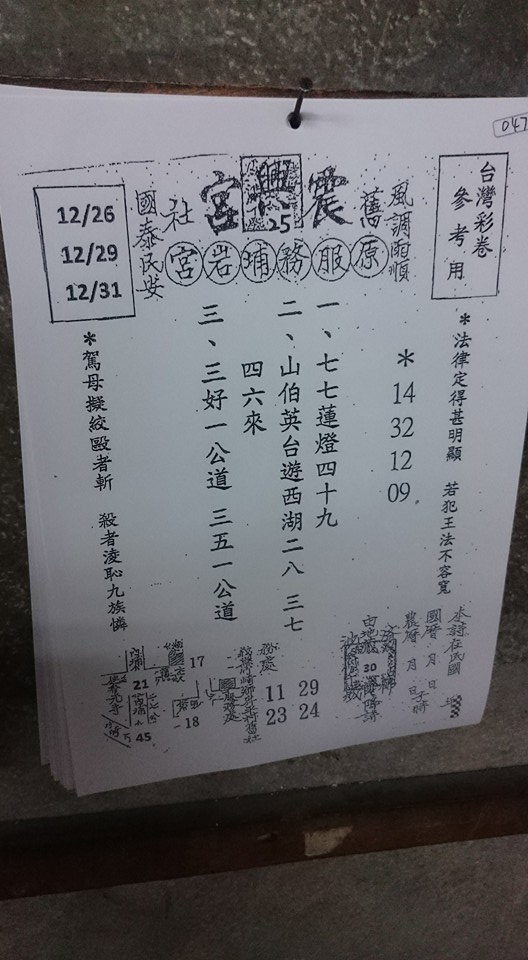 047
台灣彩卷
參考用
風調雨順
舊震興宮社
25
原服務埔岩宮
國泰民安
12/26
12/29
12/31
*法律定得甚明顯 若犯王法不容寬
*
14
32
12
09
一、七七蓮燈四十九
二、山伯英台遊西湖二八 三七
四六來
三、三好一公道 三五一公道
*駕母擬絞毆者斬 殺者淩恥九族憐
本詩在民國
國曆 月 日
農曆 月 日
30
務處
11 29
23 24
17
18
21
45